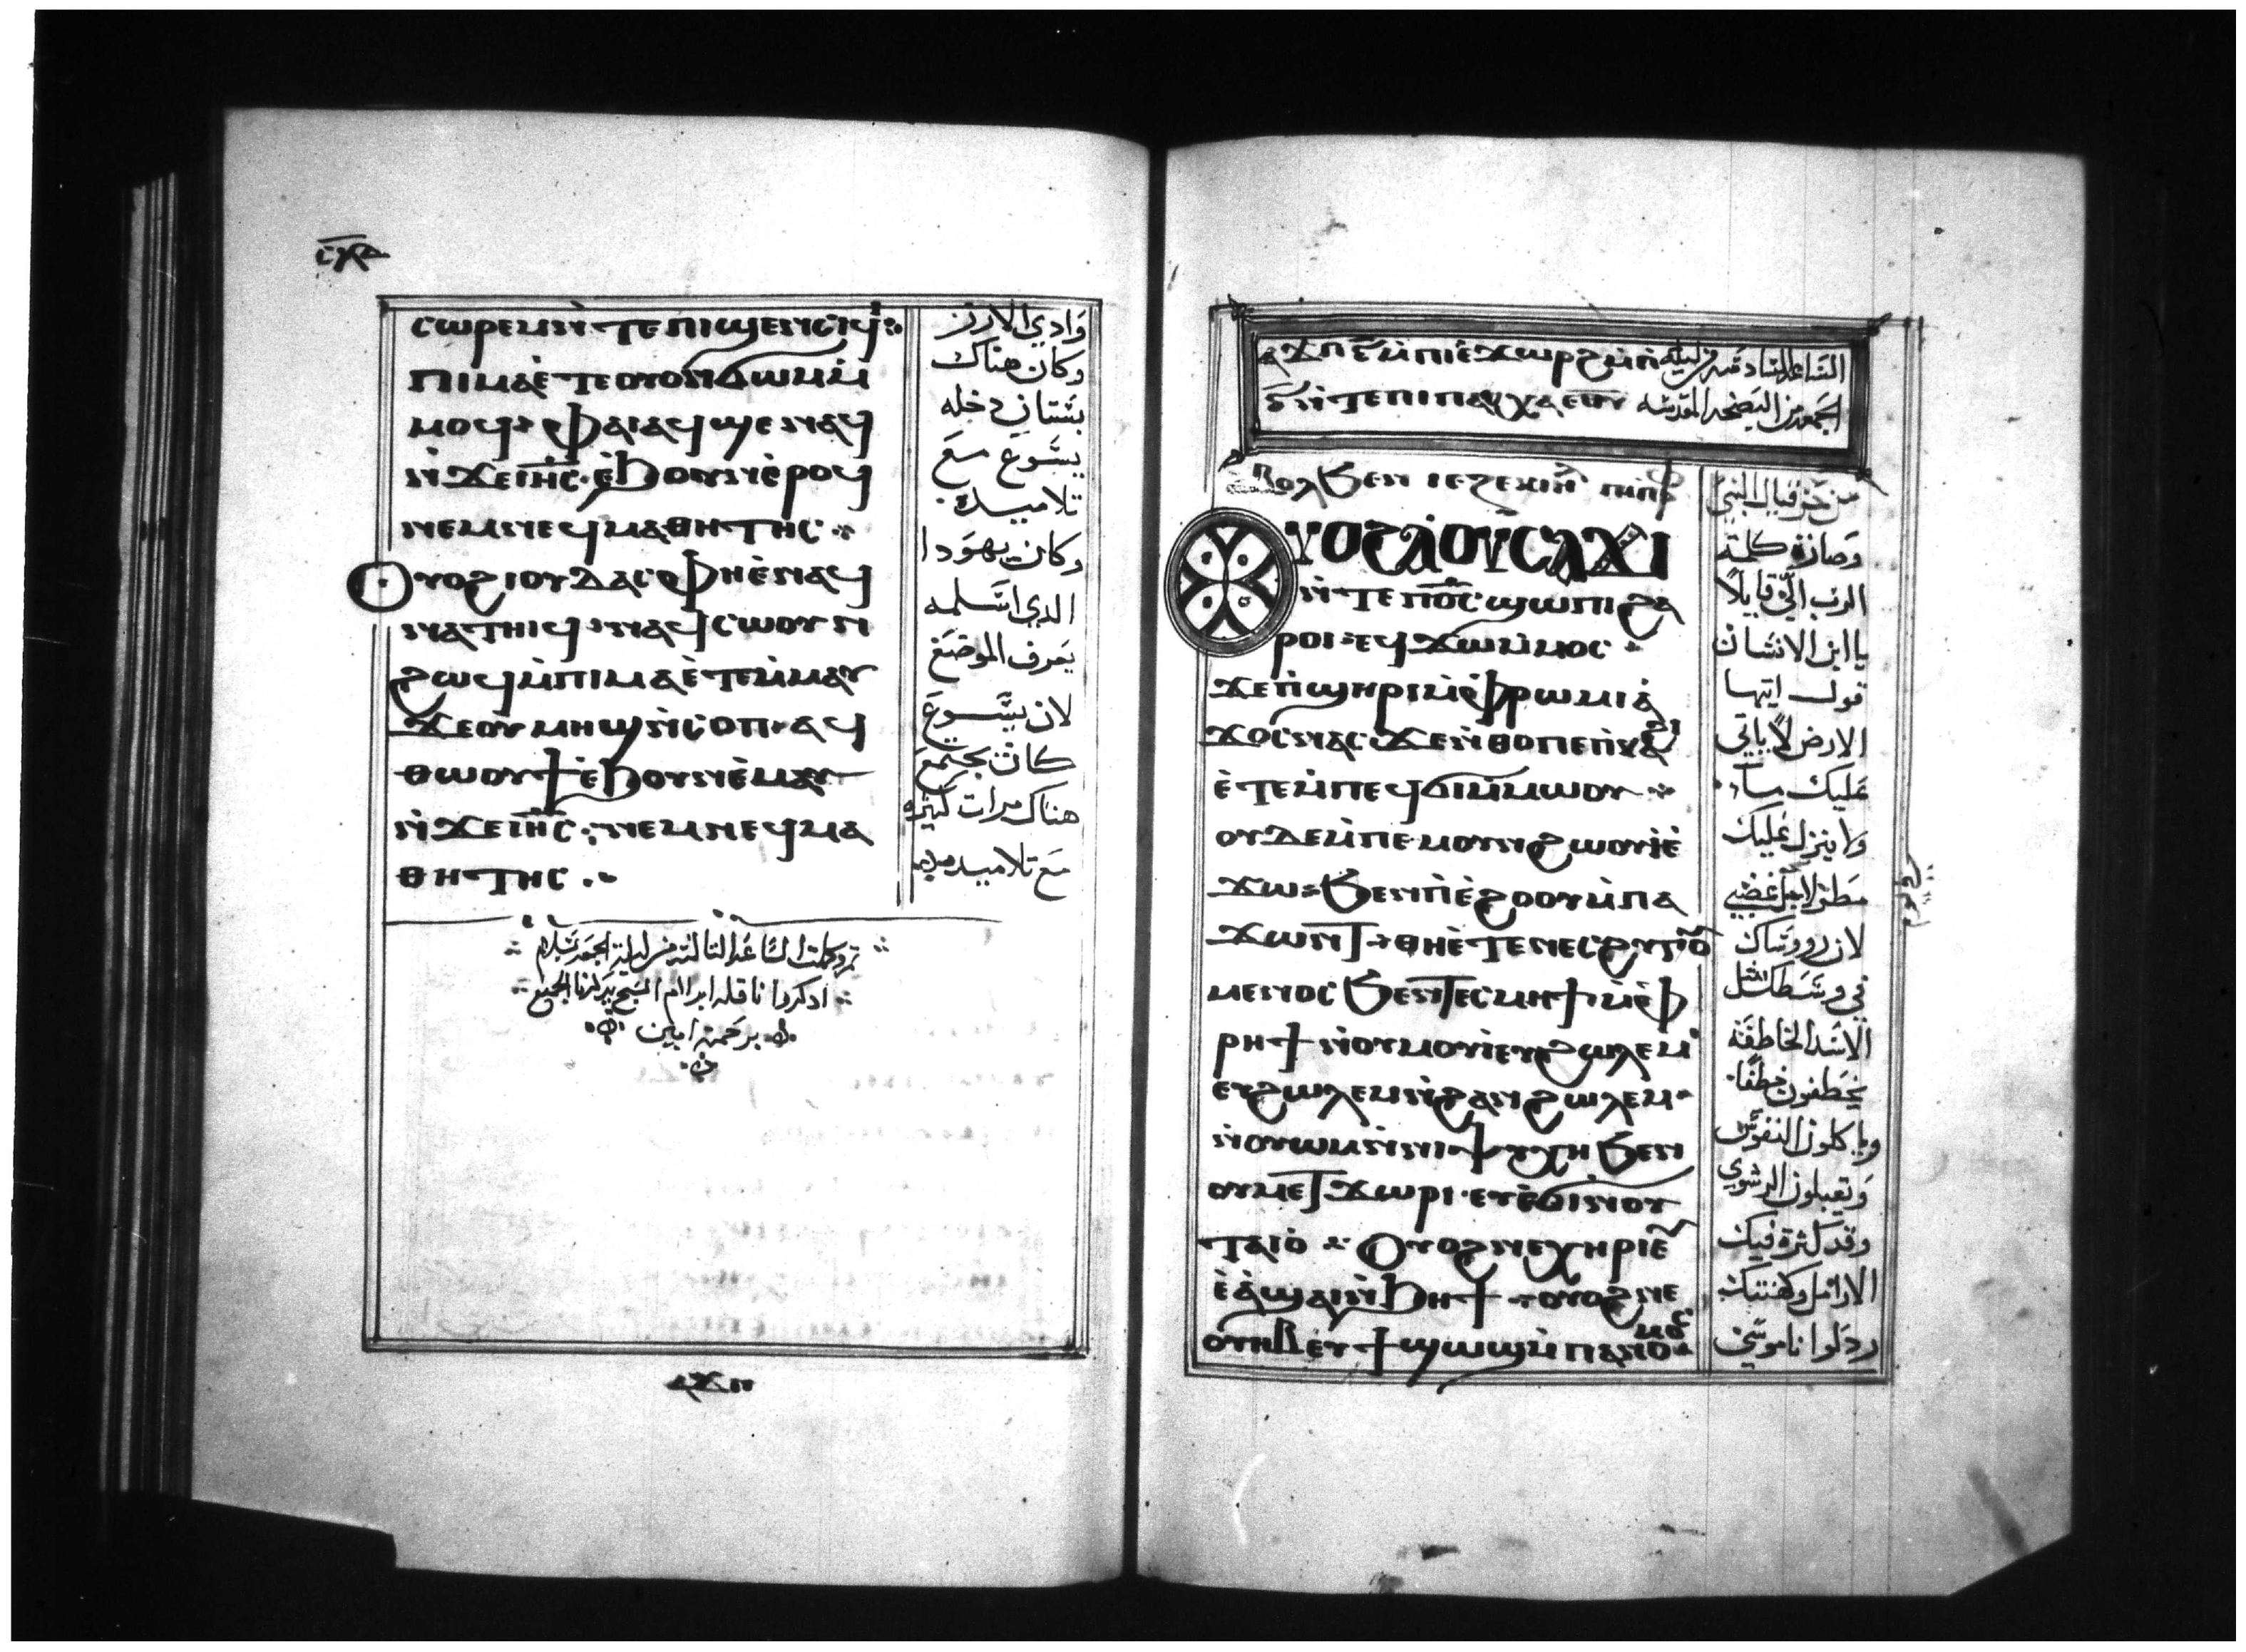 ⲥⲱⲣⲉⲙⲛ̀ⲧⲉⲡⲓϣⲉⲛⲥⲓϥⲓ
ⲡⲓⲙⲁⲉ̀ⲧⲉⲟⲩⲟⲛϭⲱⲙⲙ̀
ⲙⲟϥ ⲫⲁⲓⲁϥϣⲉⲛⲁϥ
ⲛ̀ϫⲉⲓⲏ̅ⲥ̅ ⲉ̀ϧⲟⲩⲛⲉ̀ⲣⲟϥ
ⲛⲉⲙⲛⲉϥⲙⲁⲑⲏⲧⲏⲥ
ⲟⲩⲟϩⲓⲟⲩⲇⲁⲥ ⲫⲏⲉ̀ⲛⲁϥ
ⲛⲁⲧⲏⲓϥ ⲛⲁϥⲥⲱⲟⲩⲛ
ϩⲱϥⲙ̀ⲡⲓⲙⲁⲉ̀ⲧⲉⲙ̀ⲙⲁⲩ
ϫⲉⲟⲩⲙⲏϣⲛ̀ⲥⲟⲡ ⲁϥ
ⲑⲱⲟⲩϯⲉ̀ϧⲟⲩⲛⲉ̀ⲙⲁⲩ
ⲛ̀ϫⲉⲓⲏ̅ⲥ̅ ⲛⲉⲙⲛⲉϥⲙⲁ
ⲑⲏⲧⲏⲥ
وادي الارز
وكان هناك
بستان دخله
يسوع مع
تلاميده
وكان يهودا
الدي اسلمه
يعرف الموضع
لان يسوع
كان يجتمع
هناك مرات كتيره
مع تلاميده
تم وكملت الساعه التالته من ليلة الجمعه بسلام
ادكر يا
برحمته امين
ⲁϫⲡ
ⲁϫⲡ ⲋ̅ ⲙ̀ⲡⲓⲉ̀ϫⲱⲣϩ ⲙ̀ⲡ الساعه السادسه من ليلة
ⲋ̅ ⲛ̀ⲧⲉⲡⲓⲡⲁⲥⲭⲁ ⲉⲑⲩ الجمعه من البصخه المقدسه
ⲉⲃⲟⲗϧⲉⲛ ⲓⲉⲍⲉⲕⲓⲏⲗ ⲡⲓⲡⲣ
ⲟⲩⲟϩⲁⲟⲩⲥⲁϫⲓ
ⲛ̀ⲧⲉⲡⲟ̅ⲥ̅ϣⲱⲡⲓϩⲁ
ⲣⲟⲓ ⲉϥϫⲱⲙ̀ⲙⲟⲥ
ϫⲉⲡ̀ϣⲏⲣⲓⲙ̀ⲫⲣⲱⲙⲓⲁ̀
ϫⲟⲥⲛⲁⲥ ϫⲉⲛ̀ⲑⲟⲡⲉⲡ̀ⲕⲁϩⲓ
ⲉ̀ⲧⲉⲙ̀ⲡⲉϥϭⲓⲙ̀ⲙⲱⲟⲩ
ⲟⲩⲇⲉⲙ̀ⲡⲉⲙⲟⲩⲛϩⲱⲟⲩⲓ̀ⲉ̀
ϫⲱ ϧⲉⲛⲡⲉ̀ϩⲟⲟⲩⲙ̀ⲡⲁ
ϫⲱⲛⲧ ⲑⲏⲉ̀ⲧⲉⲛⲉⲥϩⲩⲅⲟⲩ
ⲙⲉⲛⲟⲥ ϧⲉⲛⲧⲉⲥⲙⲏϯ ⲙ̀ⲫ
ⲣⲏϯ ⲛ̀ⲟⲩⲙⲟⲩⲓⲉⲩϩⲱⲗⲉⲙ
ⲉⲩϩⲱⲗⲉⲙⲛ̀ϩⲁⲛϩⲱⲗⲉⲙ
ⲛ̀ⲟⲩⲱⲙⲛ̀ⲛⲓⲯⲩⲭⲏ ϧⲉⲛ
ⲟⲩⲙⲉⲧϫⲱⲣⲓ ⲉⲩⲉ̀ϭⲓⲛ̀ⲟⲩ
ⲧⲁⲓⲟ̀ ⲟⲩⲟϩⲛⲉⲭⲏⲣⲓⲉ̀
ⲉ̀ⲁ̀ϣⲁⲓⲛ̀ϧⲏϯ ⲟⲩⲟϩⲛⲉ
ⲟⲩⲏⲃ ⲉⲩϯϣⲱϣⲙ̀ⲡⲁⲛⲟⲙⲟⲥ
من حزقيال النبي
وصارة كلمة
الرب الي قايلاً
يا ابن الانسان
قول ايتها
الارض لا ياتي
عليك ماء
ولا ينزل عليك
مطر لاجل غضبي
لان رووساك
في وسطك متل
الاسد الخاطفه
يخطفون خطفا
وياكلون النفوس
وتقبلون الرشوه
وقد كثرة فيك
الارامل وكهنتك
ردلوا ناموسي